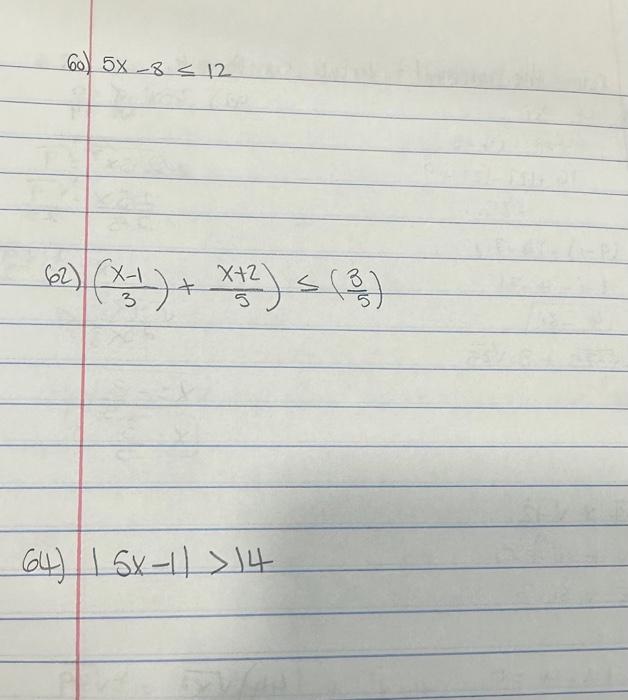 60) 5x -8 ≤ 12
62) (x-1/3) + x+2/5) ≤ (3/5)
64) |5x-1| >14